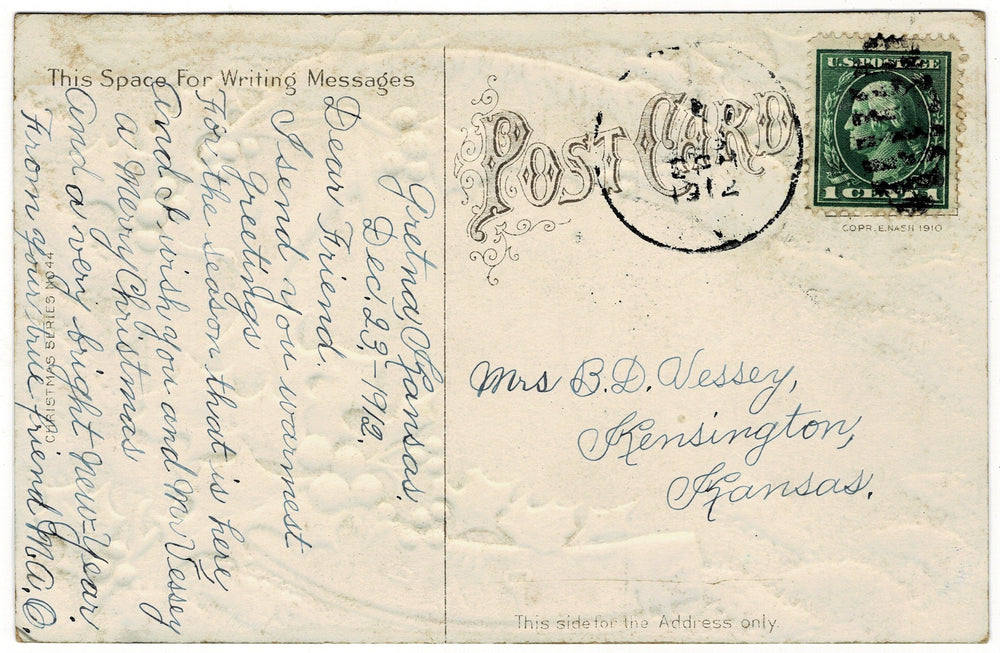 This Space For Writing Messages
Gretna, Kansas.
Dec. 23-1912.
Dear Friend.
I send you warmest
greetings
For the season that is here,
And I wish you and Mr Vessey
a Merry Christmas
And a very bright New-Year.
From your true friend M.A.O.
CHRISTMAS SERIES NO 44
POST CARD
1912
U.S. POSTAGE
1 CENT 1
COPR. E. NASH 1910
Mrs B.D. Vessey,
Kensington,
Kansas.
This side for the Address only.